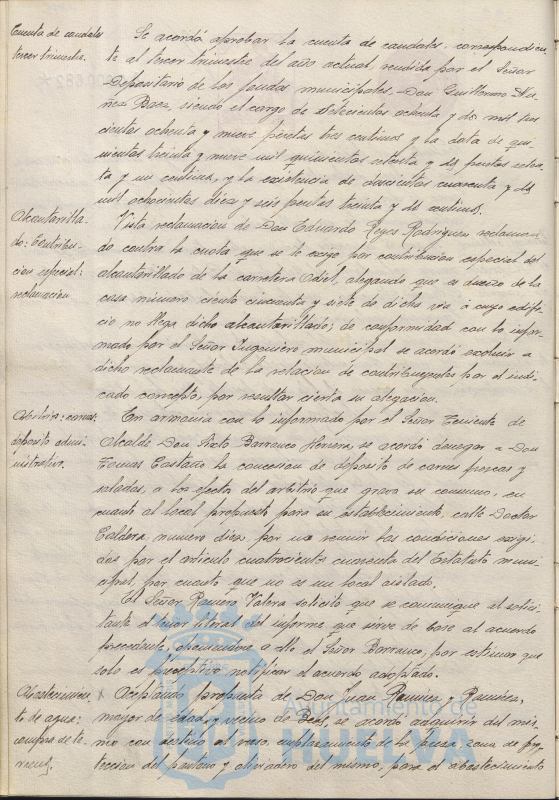 Cuenta de caudales
tercer trimestre.
Se acordó aprobar la cuenta de caudales, correspondien
te al tercer trimestre del año actual, rendida por el Señor
Depositario de los fondos municipales, Don Guillermo
Baez, siendo el cargo de setecientos ochenta y dos mil
cientos ochenta y nueve pesetas tres centimos y la data de qui
nientos treinta y nueve mil quinientos setenta y dos pesetas
ta y un centimos, y la existencia de doscientos cuarenta y dos
mil ochocientos diez y seis pesetas treinta y dos centimos.
Alcantarilla-
do: Contribu-
cion especial:
reclamación
Vista reclamacion de Don Eduardo Reyes Rodriguez reclaman
do contra la cuota que se le exige por contribucion especial del
alcantarillado de la carretera Odiel, alegando que es dueño de la
casa número ciento cincuenta y siete de dicha via á cuyo edifi
cio no llega dicho alcantarillado; de conformidad con lo infor
mado por el Señor Ingeniero municipal se acordó excluir a
dicho reclamante de la relacion de contribuyentes por el indi
cado concepto, por resultar cierta su alegacion.
Arbitrio: carnes:
deposito admi-
nistrativo.
En armonia con lo informado por el Señor Teniente de
Alcalde Don Sixto Barranco Herrera, se acordó denegar a Don
Tomas Castaño la concesion de deposito de carnes frescas y
saladas, a los efectos del arbitrio que grava su consumo, en
cuanto al local propuesto para su establecimiento, calle Doctor
Caldera, número diez, por no reunir las condiciones exigi
das por el artículo cuatrocientos cuarenta del Estatuto muni
cipal, por cuanto que no es un local aislado.
El Señor Romero Valera solicitó que se comunique al solici
tante el tenor literal del informe que sirve de base al acuerdo
precedente, oponiendose a ello el Señor Barranco, por estimar que
solo es preceptivo notificar el acuerdo adoptado.
Abastecimien-
to de agua:
compra de te-
rrenos.
x Aceptando propuesta de Don Juan Ramirez Ramirez,
mayor de edad y vecino de Beas, se acordó adquirir del mis
mo con destino al vaso, emplazamiento de la presa, zona de pro
teccion del pantano y aliviadero del mismo, para el abastecimiento
Ayuntamiento de
HUELVA